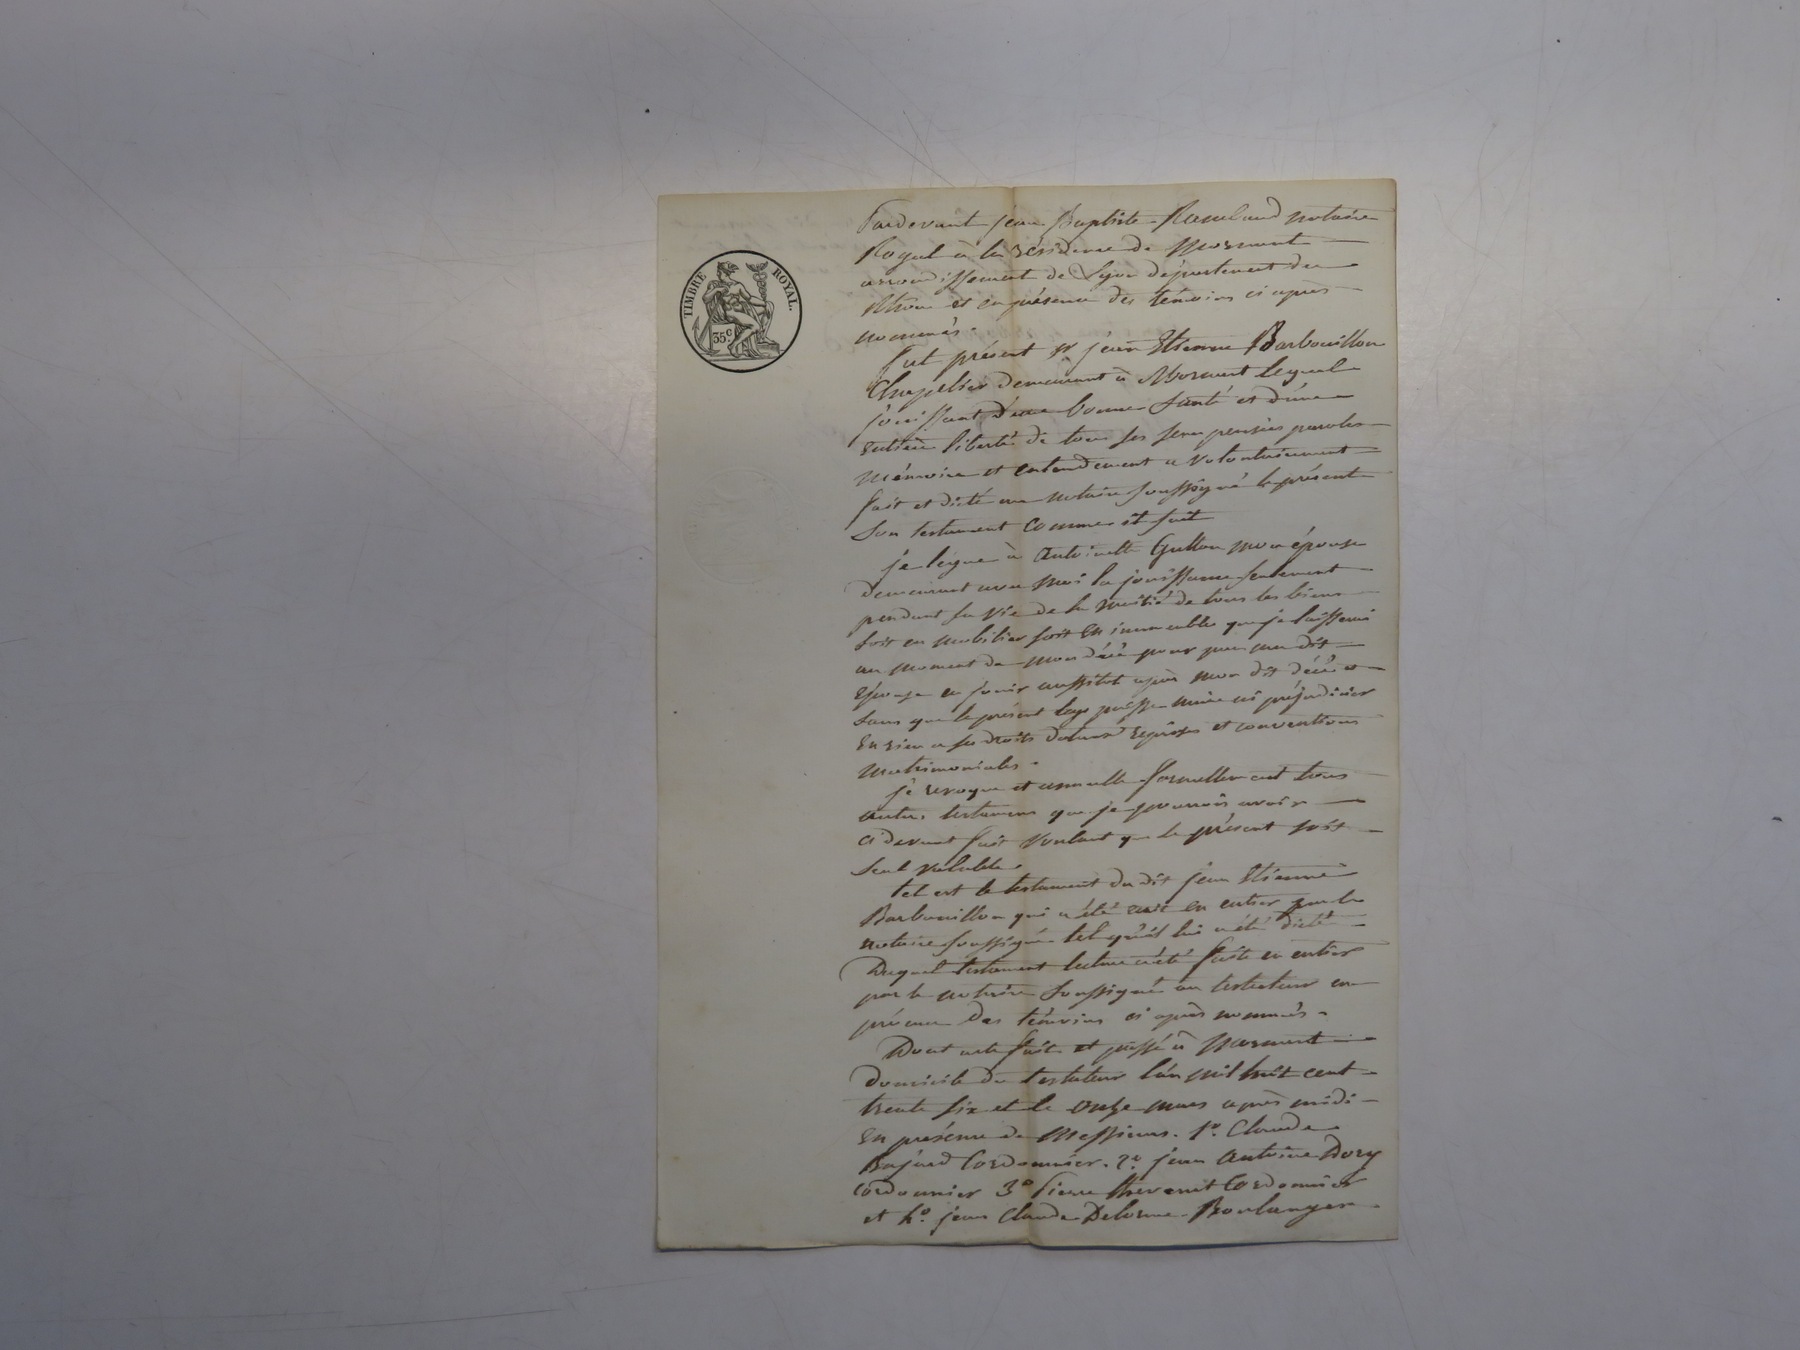 TIMBRE ROYAL.
35c
Pardevant jean Baptiste notaire
Royal à la résidence de Mornant
arrondissement de Lyon département du
Rhone et en présence des témoins ci après
nommés.
fut présent Sr jean Etienne Barbouillon
Chapelier demeurant à Mornant lequel
jouissant d'une bonne santé et d'une
entière liberté de tous ses sens pensées paroles
mémoire et entendement a volontairement
fait et dicté au notaire soussigné le présent
son testament comme il suit
je lègue à Antoinette mon épouse
demeurant avec moi la jouissance seulement
pendant sa vie de la moitié de tous les biens
soit en mobilier soit en immeuble que je laisserai
au moment de mon décè pour par ma dit
épouse en jouir aussitot après mon dit décè et
sans que le présent legs puisse nuire ni préjudicier
en rien a ses droits dotaux reprises et conventions
matrimoniales.
je revoque et annulle formellement tous
autres testamens que je pourrois avoir
ci devant fait voulant que le présent soit
seul valable.
tel est le testament du dit jean Etienne
Barbouillon qui a été écrit en entier par le
notaire soussigné tel qu'il lui a été dicté
Duquel testament lecture a été faite en entier
par le notaire soussigné au testateur en
présence des témoins ci après nommés.
Dont acte fait et passé à Mornant
domicile du testateur l'an mil huit cent
trente six et le onze mars après midi
en présence de Messieurs. 1o. Claude
Bajard Cordonnier. 2o. jean Antoine Dory
cordonnier 3o Pierre Thevenet Cordonnier
et 4o. jean Claude Delorme Boulanger